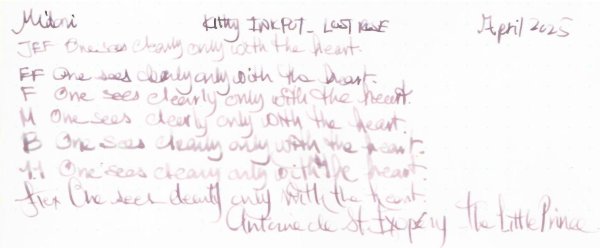 Midori Kitty INKPOT - LOST ROSE April 2025
JEF One sees clearly only with the heart.
EF One sees clearly only with the heart.
F One sees clearly only with the heart.
M One sees clearly only with the heart.
B One sees clearly only with the heart.
1.1 One sees cleary only with the heart.
flex One sees clearly only with the heart.
Antoine de St. Exupéry The Little Prince